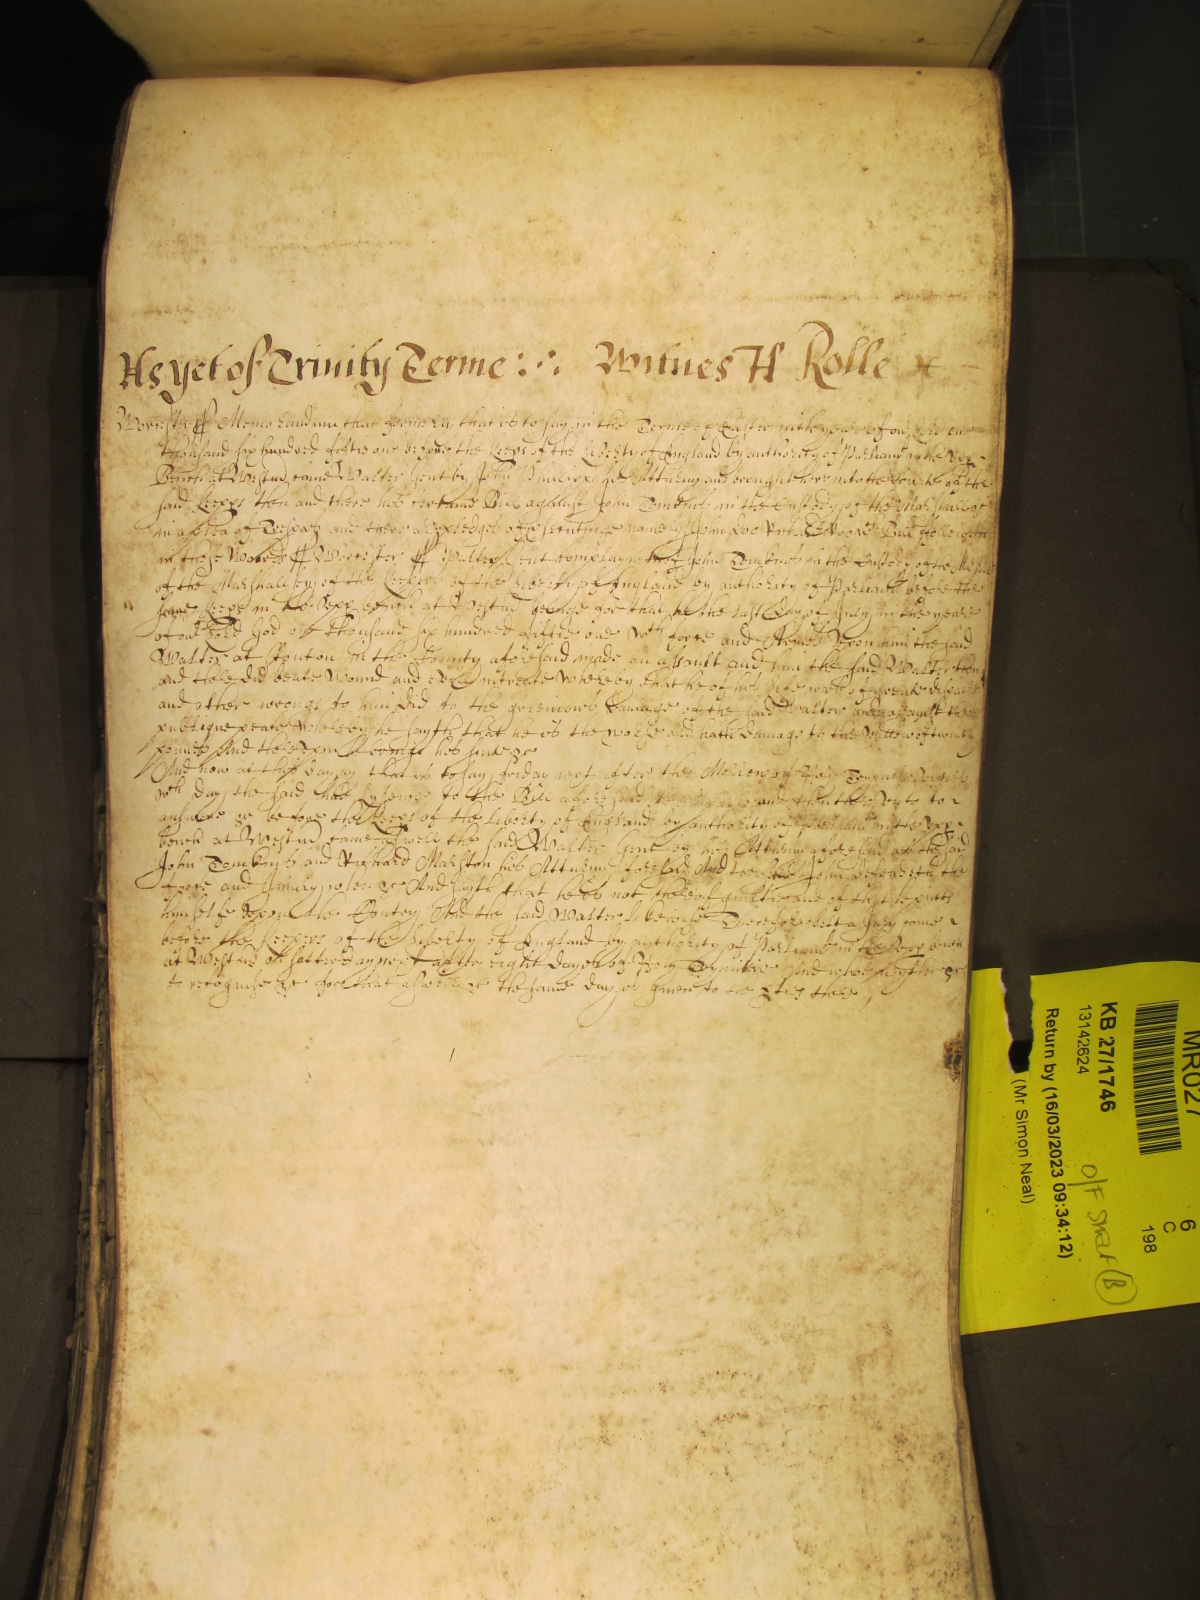 As yet of Trinity Terme Witnes H Rolle
Worcester ss Memorandum that formerly that is to say in the Terme of Easter in the yeare of our Lord one
thousand six hundred fiftie one before the Keeps of the Liberty of England by authority of Parliamt in the Upp
Bench at Westmr came Walter Gent by John his Atturny and brought here into the Court of the
said Keeps then and there his certaine Bill against John Tomkins in the Custody of the Marshall &c
in a plea of Trespas and there are pledges of psecuting namely John Doe & Richard Roe wch Bill followeth
in these words ss Worcester ss Walter Gent complayneth of John Tomkins in the Custody of the Marshall
of the Marshallsey of the Keepers of the Liberty of England by authority of Parliamt before the
same Keeps in the Upp bench at Westmr beinge for that he the last day of July in the yeare
of our Lord God one thousand six hundred fiftie one wth force and Armes Upon him the said
Walter at in the County aforesaid made an assault and him the said Walter then
and there did beate wound and evilly intreate whereby that he of his life was of greate dispaire
and other wrongs to him did to the grievous damage of the said Walter and against the
publique peace Whereby he sayth that he is the worse and hath damage to the valew of twenty
pounds And thereupon he brings his suite &c
And now at this day that is to say friday next after the Morrow of the holy Trinity untill
wch day the said had to the Bill aforesaid and then the
answere &c before the Keeps of the Liberty of England by authority of Parliamt in the Upp
bench at Westmr came aswell the said Walter Gent by his Atturny aforesaid as the said
John Tomkins by Richard Marston his Atturny aforesaid And the said John defendeth the
force and Iniury when &c And sayth that he is not thereof guiltie and of that he puts
himselfe upon the Contry And the said Walter likewise Therefore lett a Jury come
before the Keepers of the Liberty of England by authority of Parliamt in the Upp bench
at Westmr on next after eight dayes of Holy Trinitie And who neither &c
to recognise &c because that aswell &c the same day is given to the pties there
MR027
6
C
198
KB 27/1746
13142624
O/F Shelf (B)
Return by (16/03/2023 09:34:12)
(Mr Simon Neal)